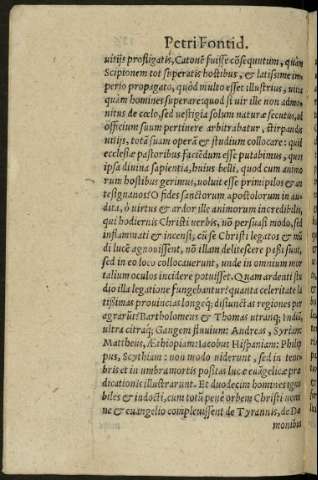 Petri Fontid.
uitijs profligatis, Catonē fuisse cōsequutum, quàm
Scipionem tot superatis hostibus, & latissime im-
perio propagato, quòd multo esset illustrius, uitia
quàm homines superare: quod si uir ille non admo-
nitus de cœlo, sed uestigia solum naturæ secutus, ad
officium suum pertinere arbitrabatur, extirpandis
uitijs, totā suam operā & studium collocare: quid
ecclesiæ pastoribus faciēdum esse putabimus, quos
ipsa diuina sapientia, huius belli, quod cum animo
rum hostibus gerimus, uoluit esse primipilos & an
tesignanos? O fides sanctorum apostolorum in au-
dita, ô uirtus & ardor ille animorum incredibilis,
qui hodiernis Christi uerbis, nō persuasi modo, sed
inflammati & incensi, cū se Christi legatos & mū
di lucē agnouissent, nō illam delitescere passi sunt,
sed in eo loco collocauerunt, unde in omnium mor
talium oculos incidere potuisset. Quam ardenti stu
dio illa legatione fungebantur? quanta celeritate la
tissimas prouincias longeq; disiunctas regiones per
agrarūt? Bartholomeus & Thomas utranq; indiā,
ultra citraq; Gangem fluuium: Andreas, Syriam:
Mattheus, Æthiopiam: Iacobus Hispaniam: Philip
pus, Scythiam: non modo uiderunt, sed in tene
bris et in umbra mortis positas lucæ euāgelicæ præ
dicationis illustrarunt. Et duodecim homines igno
biles & indocti, cum totum penè orbem Christi nomi
ne & euangelio compleuissent de Tyrannis, de Dæ
monibus